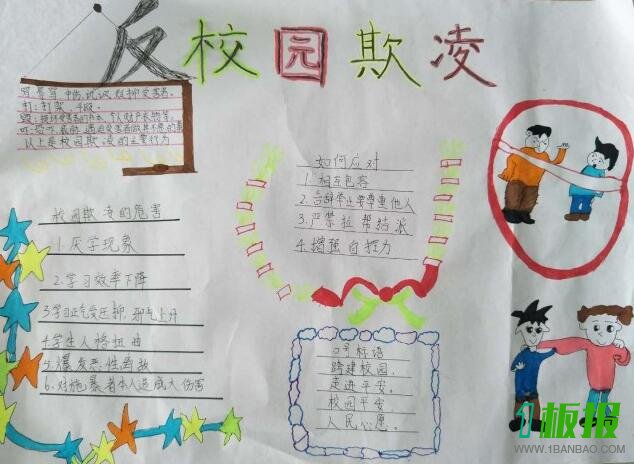 反校园欺凌
骂:辱骂、中伤、讥讽、贬抑受害者。
打:打架、斗殴
毁:损坏受害者的书本、个人财产、衣物等。
吓:恐吓、威胁、逼迫受害者做其不愿的事
以上是校园欺凌的主要行为
校园欺凌的危害
1.厌学现象
2.学习效率下降
3.学习正气受压抑,邪气上升
4.学生人格扭曲
5.爆发恶性事故
6.对施暴者本人造成大伤害
如何应对
1.相互包容
2.言辞举止要尊重他人
3.严禁拉帮结派
4.增强自控力
口号标语
跨建校园,
走进平安。
校园平安,
人民心愿。
1板报
WWW.1BANBAO.COM